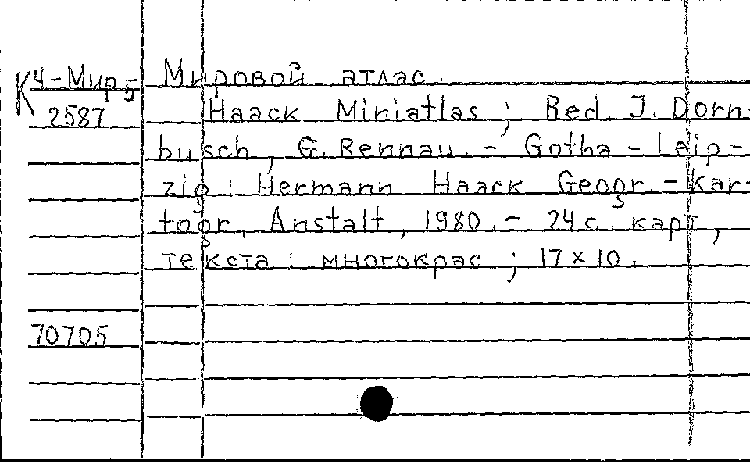 К4-Мир5 Мировой атлас.
2587 Haack Miniatlas ; Red. J. Dorn-
busch, G. Rennau. - Gotha - Leip-
zig : Hermann Haack Geogr. - Kar-
togr. Anstalt, 1980. - 24 с. карт,
текста : многокрас ; 17 x 10.
70705